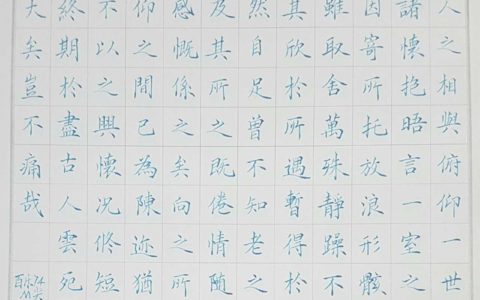 人之相與俯仰一世
諸懷抱晤言一室之
因寄所托放浪形骸
雖取舍萬珠靜躁不
其欣於所遇暫得於
然自足曾不知老之
及其所之既倦情隨
感慨係之矣向之所
仰之間已為陳迹猶
不以之興懷況修短
終期於盡古人雲死
大矣豈不痛哉